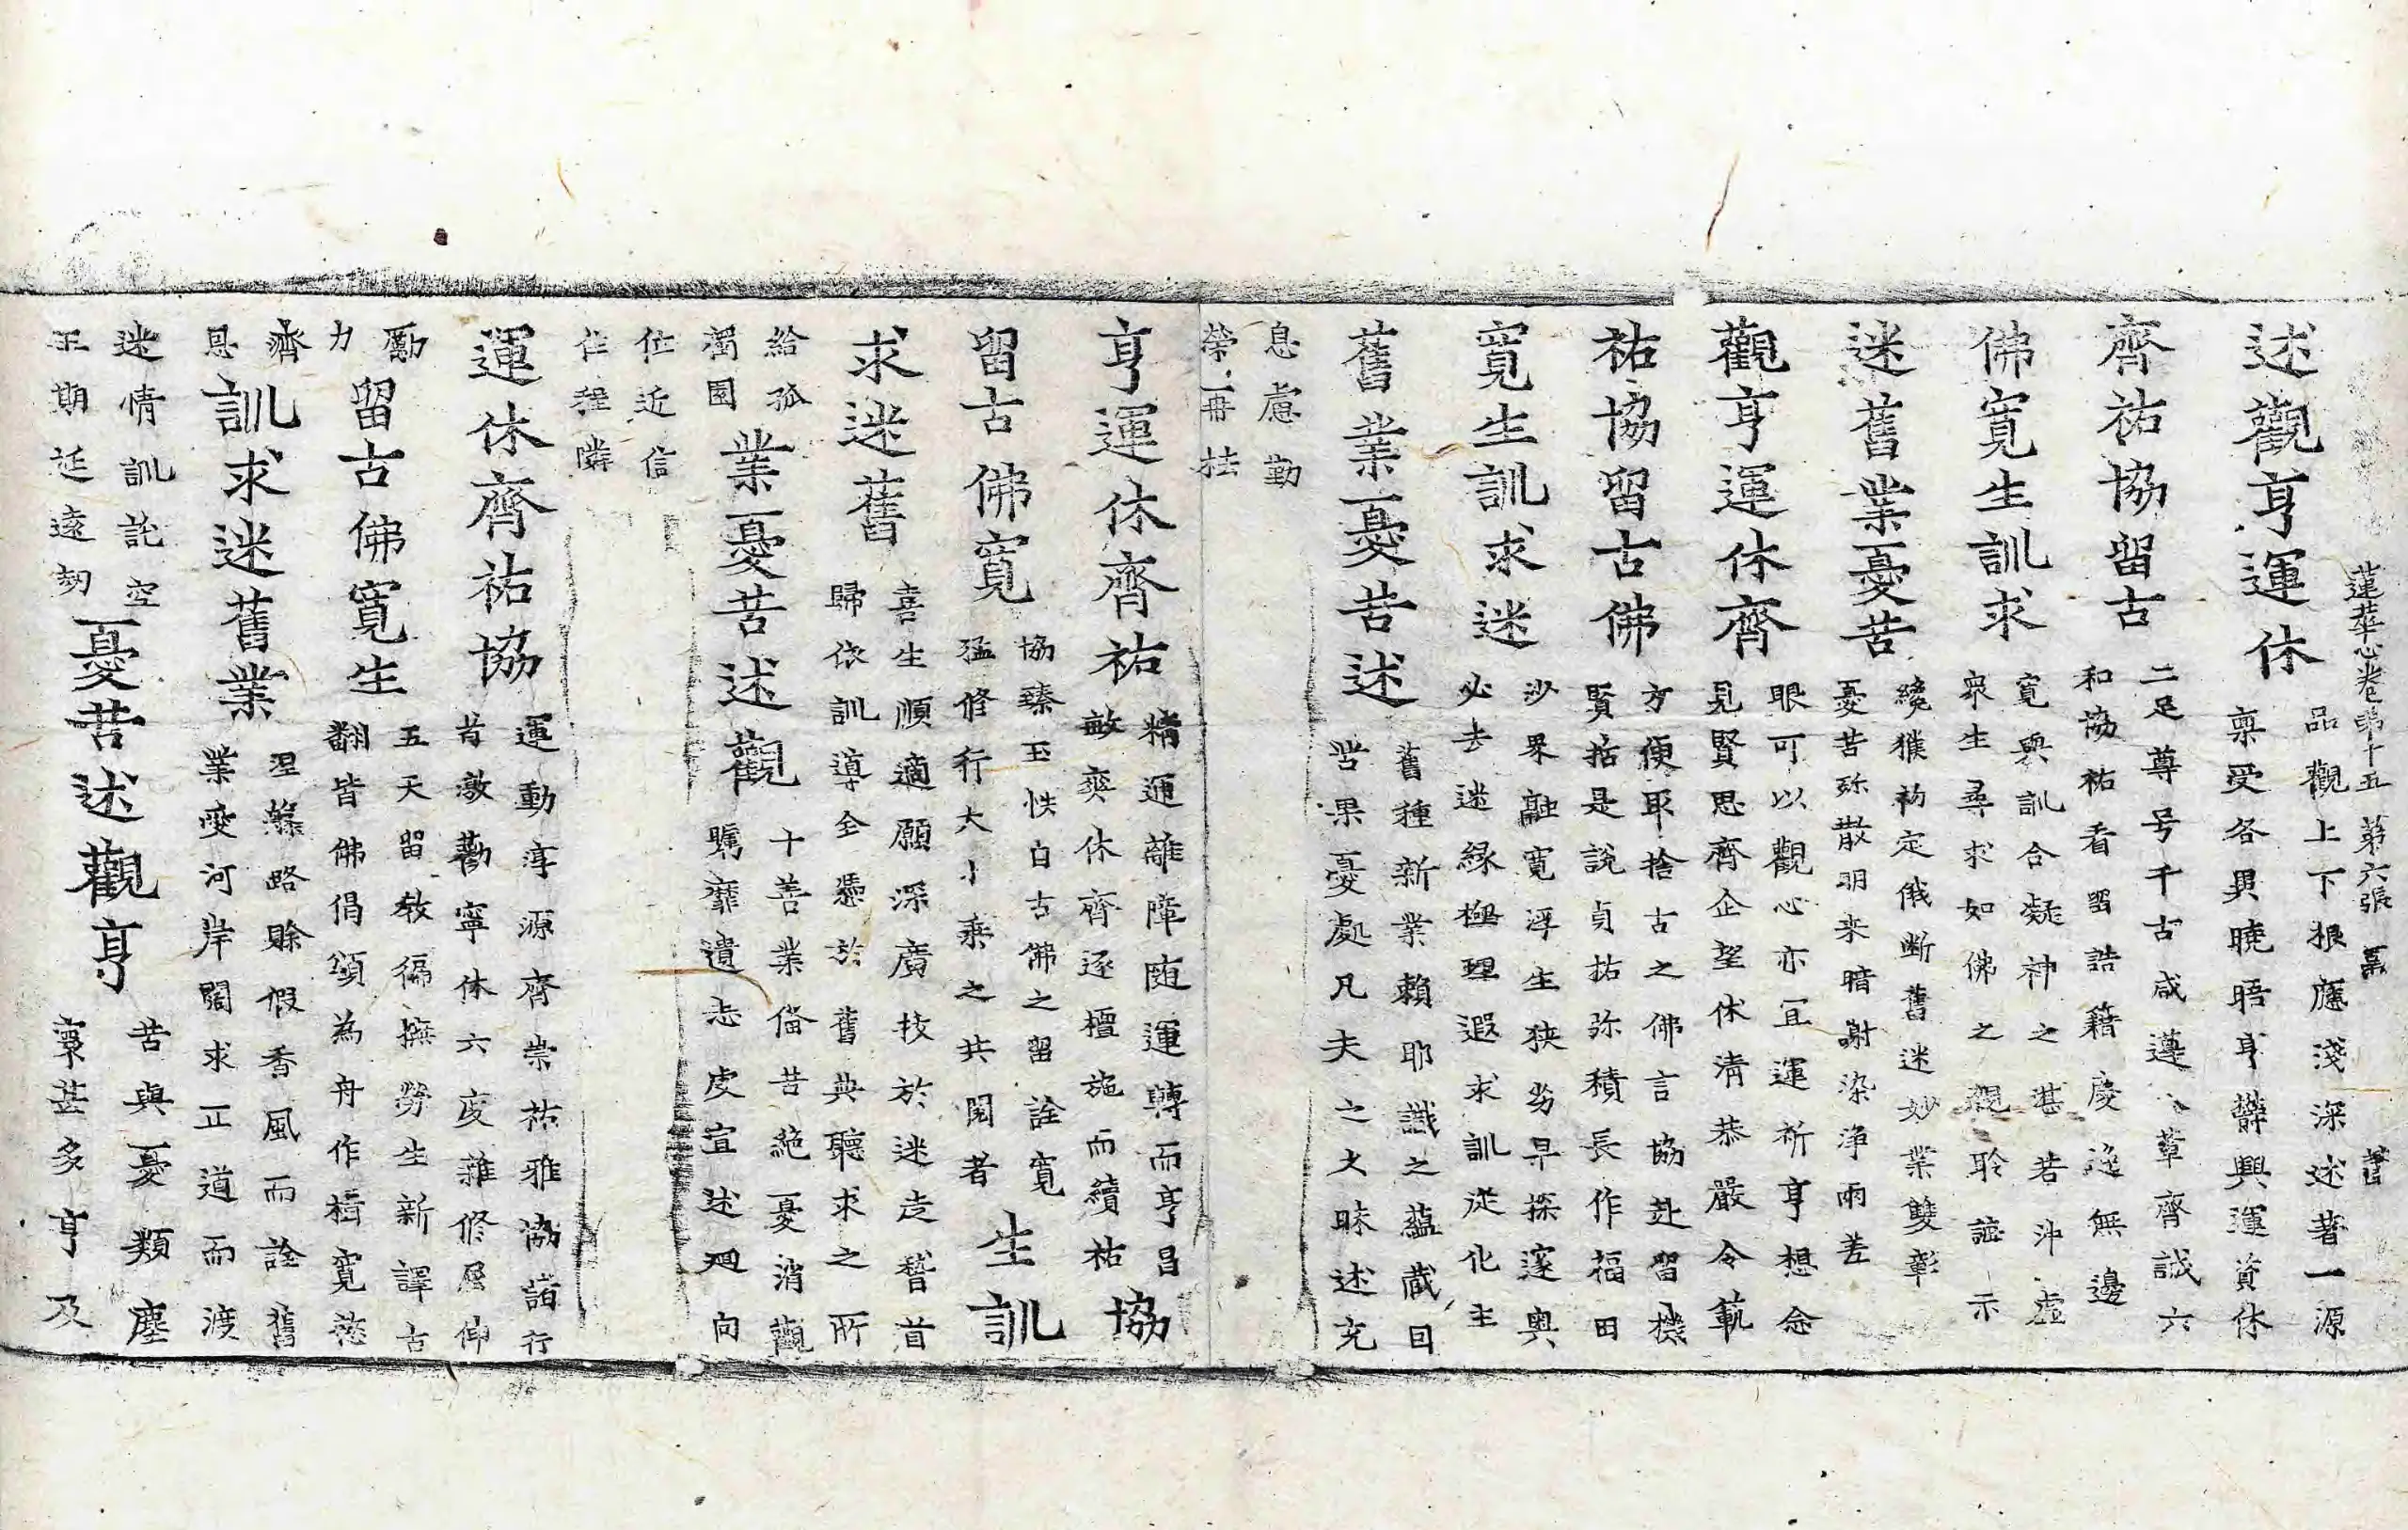 蓮華心卷第十五 第六張
述觀亨運休
品觀上下根應淺深述著一源
稟受各異曉晤亨辭興運資休
齊祐協留古
二足尊号千古咸遵、羣齊誠六
和協祐看留誥籍慶逸無邊
佛寬生訓求
寬與訓合凝神之湛若沖虛
衆生尋求如佛之觀聆謐示
迷舊業憂苦
纔獲初定俄断舊迷妙業雙彰
憂苦弥散明来暗謝染淨兩差
觀亨運休齊
眼可以觀心亦宜運祈亨想念
見賢思齊企望休清恭嚴令範
祐協留古佛
方便取捨古之佛言協赴留機
賢括是說貞祐弥積長作福田
寬生訓求迷
沙界融寬浮生狭劣早探邃奧
必去迷緣極理遐求訓從化主
舊業憂苦述
舊種新業賴耶識之蘊蔵回
苦果憂處凡夫之大昧述充
息慮勤
榮冊拔
亨運休齊祐
精運離障随運轉而亨昌
敏奕休齊逐檀施而續祐
協
留古佛寬
協臻玉帙白古佛之留詮寬
猛修行大小乘之共閱者
生訓
求迷舊
喜生順適願深廣技於迷走稽首
歸依訓導全憑於舊典聽求之所
給孤
濁園
業憂苦述觀
十善業俻昔絶憂消觀
矚靡遺志虔宣述廻向
仕近信
仕程隣
運休齊祐協
運動淳源齊崇祐雅協諸行
首激勸寧休六度雜修屬仰
勵
力
留古佛寬生
五天留教徧撫勞生新譯古
翻皆佛倡頌為舟作楫寬慈
濟
恩
訓求迷舊業
涅槃路賒假香風而詮舊
業變河岸闊求正道而渡
迷情訓託空
王期延遠刼
憂苦述觀亨
苦與憂類塵
稟甚多亨及